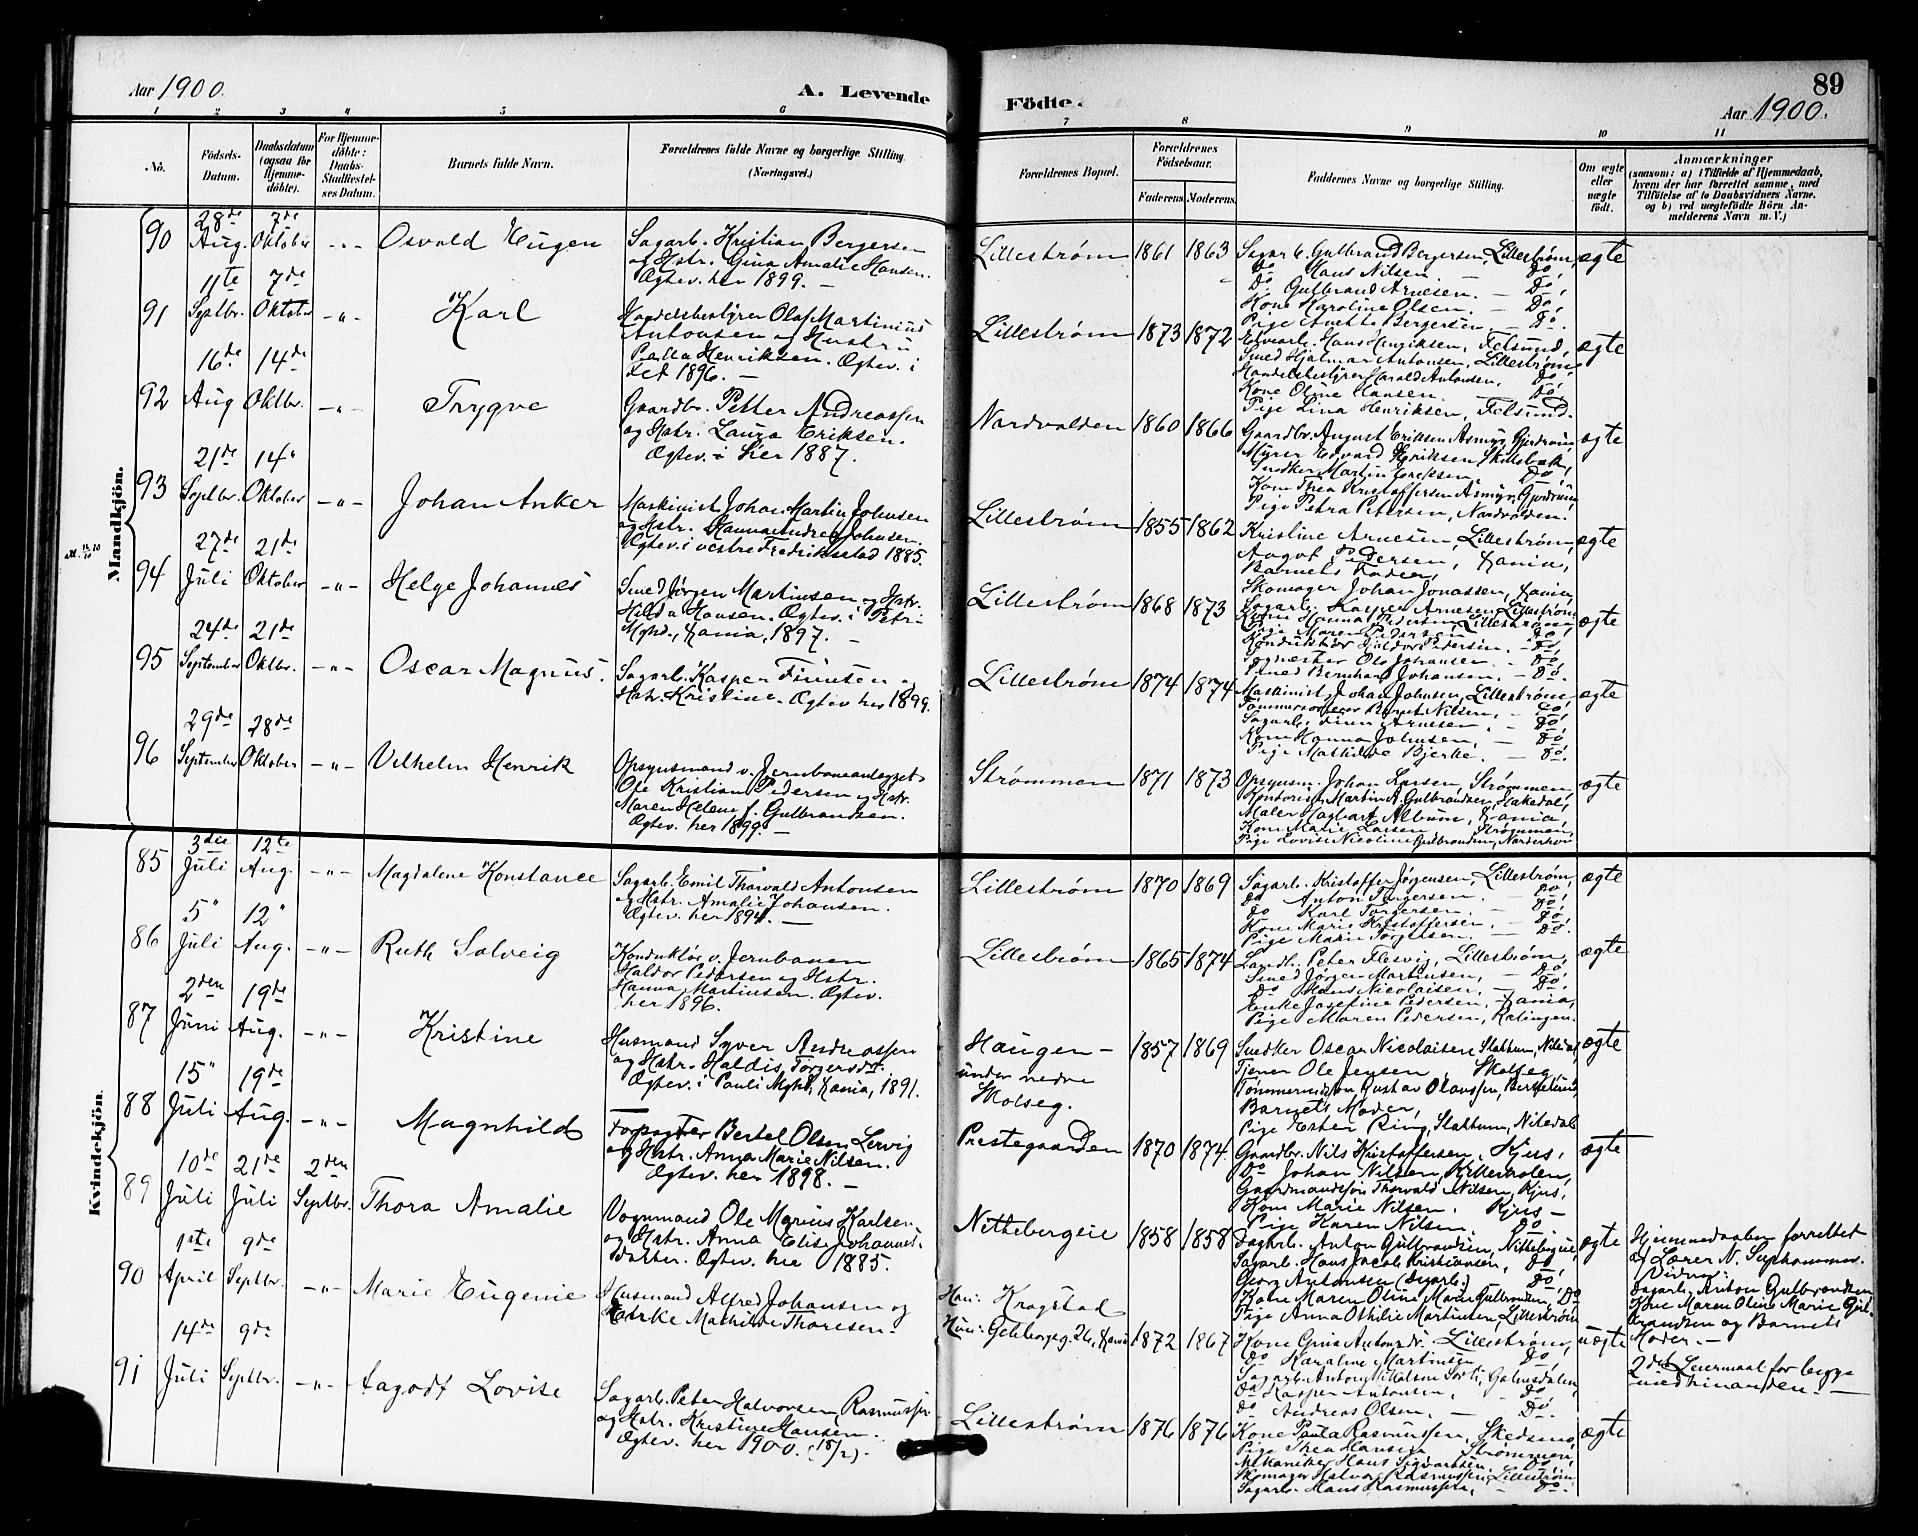 89
Aar 1900.
A. Levende Födte.
Aar 1900.
1 2 3 4 5 6 7 8 9 10 11
No.
Födsels-Datum.
Daabsdatum (ogsaa for Hjemmedöbte).
For Hjemmedöbte: Daabs-Stadfæstelses Datum.
Barnets fulde Navn.
Forældrenes fulde Navne og borgerlige Stilling. (Næringsvei.)
Forældrenes Bopæl.
Forældrenes Födselsaar.
Faderens. Moderens.
Faddernes Navne og borgerlige Stilling.
Om ægte eller uægte födt.
Anmærkninger
(saasom: a) i Tilfælde af Hjemmedaab, hvem der har forrettet samme, med Tilföielse af to Daabsvidners Navne, og b) ved uægtefödte Börn Anmelderens Navn m. V.)
Mandkjön.
90 28de Aug. 7de Oktober -"- Osvald Eugen
Sagarb. Kristian Bergersen
og Hstr. Gina Amalie Hansen.
Ægtev. her 1899. —
Lillestrøm 1861 1863
Sagarb. Gulbrand Bergersen, Lillestrøm,
Do Hans Nilsen Do,
Do. Gulbrand Arnesen. — Do,
Kone Karoline Olsen. — Do,
Pige Anette Bergersen. — Do.
ægte
91 11te Septbr. 7de Oktober -"- Karl
Handelsbestyrer Olaf Martinius
Antonsen og Hustru
Henriksen. Ægtev. i
Fet 1896. —
Lillestrøm 1873 1872
Elvearb. Hans Henriksen, Fetsund,
Smed Hjalmar Antonsen, Lillestrøm,
Handelsbestyrer Harald Antonsen. Do,
Kone Oline Hansen. — Do,
Pige Lina Henriksen, Fetsund.
ægte
92 16de Aug 14de Oktbr. -"- Trygve
Gaardbr. Petter Andreassen
og Hstr. Laura Eriksen.
Ægtev. i her 1887.
Nordvolden 1860 1866
Gaardbr. August Eriksen Asmyr, Gjerdrum,
Myrer Edvard Henriksen Skillebæk,
Snedker Martin Do
Kone Thea Kristoffersen Asmyr, Gjerdrum,
Pige Petra Petersen, Nordvolden.
ægte
93 21de Septbr. 14" Oktober -"- Johan Anker
Maskinist Johan Martin Johnsen
og Hstr. Hanna Andrea Johnsen.
Ægtev. i vestre Fredriksstad 1885.
Lillestrøm 1855 1862
Kristine Arnesen, Lillestrøm,
Aagot Pedersen, Xania,
Barnets Fader,
Skomager Johan Jonassen, Xania,
Sagarb. Kasper Arnesen, Lillestrøm
ægte
94 27de Juli 21de Oktober -"- Helge Johannes
Smed Jørgen Martinsen og Hstr.
Hilda Hansen. Ægtev. i Petri
Mghd., Xania, 1897. —
Lillestrøm 1868 1873
Kone Hanna Pedersen, Lillestrøm,
Pige Maren Pedersen Do,
Konduktør Haldor Pedersen. — Do,
Ole Johansen. — Do,
Smed Bernhard Johansen. — Do.
ægte
95 24de September 21de Oktbr. -"- Oscar Magnus.
Sagarb. Kasper Finsen og
Hstr. Kristine. Ægtev. her 1899.
Lillestrøm 1874 1874
Maskinist Johan Johnsen, Lillestrøm,
Bernt Nilsen, — Do,
Sagarb. Finn Arnesen. — Do,
Kone Hanna Johnsen, — Do,
Pige Mathilde Bjerke. — Do.
ægte
96 29de September 28de Oktober -"- Vilhelm Henrik
Opsynsmand v. Jernbaneanlægget
Ole Kristian Pedersen og Hstr.
Maren Helene f. Gulbrandsen.
Ægtev. her 1899. —
Strømmen 1871 1873
Opsynsm. Johan Larsen, Strømmen,
Kontorist Martin A. Gulbrandsen, Hakedal,
Maler Hagbart Album, Xania,
Kone Marie Larsen, Strømmen,
Pige Lovise Nicoline Gulbrandsen, Norderhov
ægte
Kvindekjön.
85 3die Juli 12te Aug. -"- Magdalene Konstance
Sagarb. Emil Thorvald Antonsen
og Hstr. Amalie Johansen.
Ægtev. her 1894. —
Lillestrøm 1870 1869
Sagarb. Kristoffer Jørgensen, Lillestrøm,
do Anton Torgersen. — Do,
Do Karl Torgersen. — Do,
Kone Marie Kristoffersen. — Do,
Pige Marie Torgersen. — Do.
ægte
86 5" Juli 12" Aug. -"- Ruth Solveig
Konduktör v. Jernbanen
Haldor Pedersen og Hstr.
Hanna Martinsen. Ægtev.
her 1896.
Lillestrøm 1865 1874
Landh. Peter Flesvig, Lillestrøm,
Smed Jørgen Martinsen, — Do,
Do Hans Nicolaisen, — Do,
Enke Josefine Pedersen, Xania,
Pige Maren Pedersen, Rælingen.
ægte
87 2den Juni 19de Aug. -"- Kristine
Husmand Syver Andreassen
og Hstr. Haldis Torgersdt.
Ægtev. i Pauli Mghd, Xania, 1891.
Haugen —
under nedre
Skolseg.
1857 1869
Snedker Oscar Nicolaisen Slattum, Nitedal,
Tjener Ole Jensen, Skolseg,
Tømmermand Gustav Olavssen, Berkelund,
Barnets Moder,
Pige Ester Ring, Slattum, Nitedal
ægte
88 15" Juli 19de Aug. -"- Magnhild
Forpagter Bertel Olsen Lervig
og Hstr. Anna Marie Nilsen.
Ægtev. her 1898. —
Prestegaarden 1870 1874
Gaardbr. Nils Kristoffersen, Kjus,
Do Johan Nilsen,
Gaardmandssøn Thorvald Nilsen, Kjus,
Kone Marie Nilsen. Kjus —
Pige Karen Nilsen. Do
ægte
89 10de Juli 21de Juli 2den Septbr. Thora Amalie
Vognmand Ole Marius Karlsen
og Hstr. Anna Elise Johannes-
datter. Ægtev. her 1885.
Nittebergeie 1858 1858
Dagarb. Anton Gulbrandsen, Nittebergeie,
Sagarb. Hans Jacob Kristiansen, Do,
Georg Antonsen (Sagarb.) Do,
Kone Maren Oline Marie Gulbrandsen, Do
Pige Anna Othilie Martinsen, Lillestrøm
ægte
Hjemmedaaben forrettet
af Lærer N. Sephammer.
Vidner:
Dagarb. Anton Gulbrandsen
Kone Maren Oline Marie Gul-
brandsen og Barnets
Moder. —
90 1ste April 9de Septbr. -"- Marie Eugenie
Husmand Alfred Johansen og
Enke Mathilde Thoresen.
Han: Kragstad
Hun: 26, Xania
1872 1867
Kone Gina Antonsdt. Lillestrøm,
do Karoline Martinsen Do,
Sagarb. Anton Mikelsen
Do Kasper Antonsen, — Do
do Andreas Olsen. — Do.
uægte
2det Leiermaal for begge
med hinanden. —
91 14de Juli 9de Septbr. -"- Aagodt Lovise
Sagarb. Peter Halvorsen Rasmussen
og Hstr. Kristine Hansen.
Ægtev. her 1900. (18/2). —
Lillestrøm 1876 1876
Kone Paula Rasmussen, Skedsmo,
Pige Thea Hansen Strømmen,
Mekaniker Hans Sigvartsen, Do,
Skomager Halvor Rasmussen, Lillestrøm
Sagarb. Hans Rasmussen, — Do.
ægte